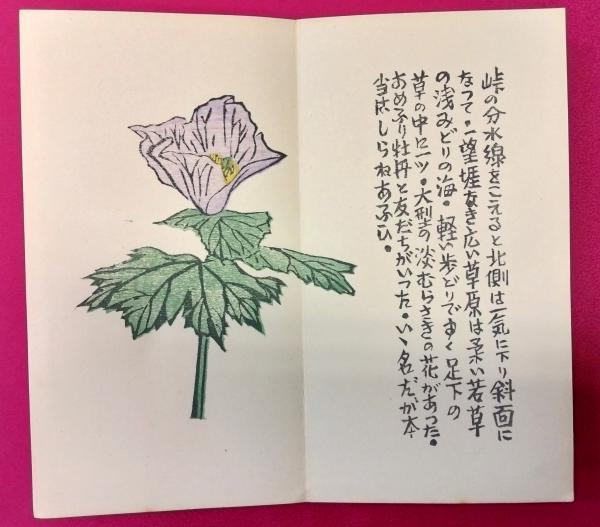 峠の分水線をこえると北側は一気に下り斜面に
なって・一望涯なき広い草原は柔い若草
の浅みどりの海・軽い歩どりですゝむ足下の
草の中に一ツ・大型の淡むらさきの花があった・
おめふり牡丹と友だちがいった・いゝ名だが本
当はしらねあふひ・